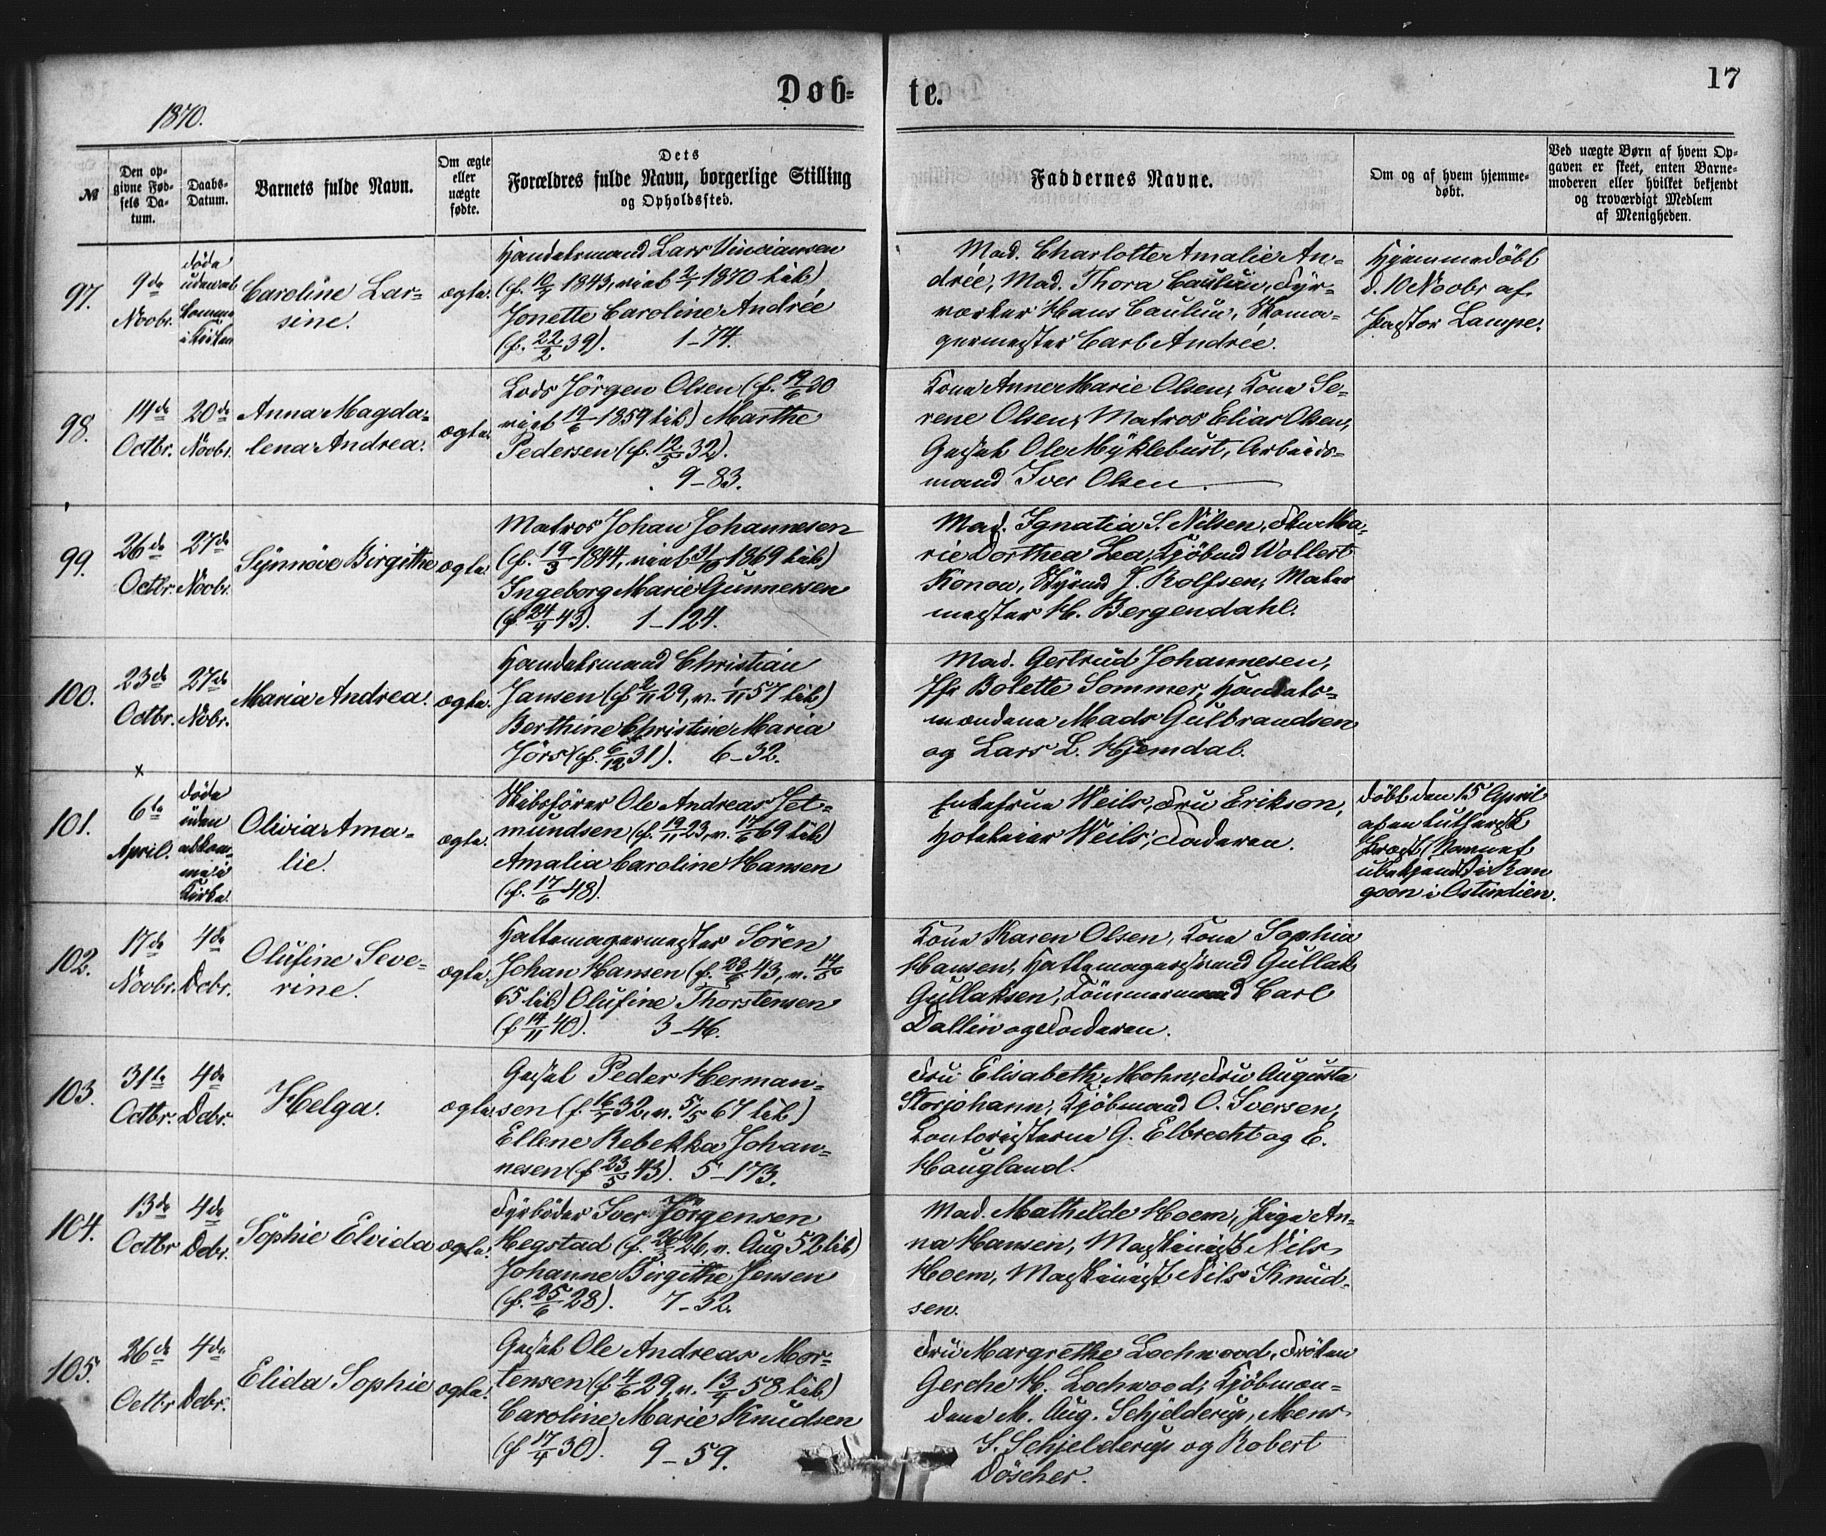 17
Døb- te.
1870.
№
Den opgivne Fødsels Datum.
Daabs-Datum.
Barnets fulde Navn.
Om ægte eller uægte fødte.
Dets
Forældres fulde Navn, borgerlige Stilling
og Opholdssted.
Faddernes Navne.
Om og af hvem hjemme-
døbt.
Ved uægte Børn af hvem Op-
gaven er skeet, enten Barne-
moderen eller hvilket bekjendt
og troværdigt Medlem
af Menigheden.
97.
9de
Novbr.
døde
uden at
komme
i Kirken
Caroline Lar-
sine.
ægte.
Handelsmand Lars Vinciansen
(f. 10/7 1843, viet 2/1 1870 til)
Jonette Caroline Andrée
(f. 22/2 39). 1-74.
Mad. Charlotte Amalie An-
drée, Mad. Thora Caulun, Fyr-
værker Hans Caulun, Skoma-
germester Carl Andrée.
Hjemmedøbt
d. 10 Novbr af
Pastor Lampe.
98.
14de
Octbr.
20de
Novbr.
Anna Magda-
lena Andrea.
ægte.
Lods Jørgen Olsen (f. 19/6 30
viet 19/6 1859 til) Marthe
Pedersen (f. 12/5 32).
9-83.
Kone Anne Marie Olsen, Kone Se-
rene Olsen, Matros Elias Olsen,
Gesel Ole Myklebust, Arbeids-
mand Iver Olsen
99.
26de
Octbr.
27de
Novbr.
Synnøve Birgithe
ægte.
Matros Johan Johannesen
(f. 19/3 1844, viet 31/10 1869 til)
Ingeborg Marie Gunnersen
(f. 24/4 43). 1-124.
Mad. Ignatia S. Nilsen, Fru Ma-
rie Dorthea Lea, Kjøbmd Wollert
Konow, Styrmd J. Rolfsen, Maler
mester H. Bergendahl.
100.
23de
Octbr.
27de
Nobr.
Maria Andrea.
ægte.
Handelsmand Christian
Jansen (f 2/11 29, v. 1/11 57 til)
Berthine Christine Maria
Jörs (f. 6/12 31). 6-32.
Mad. Gertrud Johannesen,
Jfr Bolette Sommer, Handels-
mændene Mads Gulbrandsen
og Lars L. Hjemdal.
x
101.
6te
April.
døde
uden
at kom-
me i
Kirke
Olivia Ama-
lie.
ægte.
Skibsfører Ole Andreas Jet-
mundsen (f. 19/11 23, v. 17/6 69 til)
Amalia Caroline Hansen
(f. 17/6 48).
Enkefrue Weils, Fru Erikson,
Hoteleier Weils, Faderen.
Døbt den 15 April
af en luthersk
Præst (Navnet
ubekjendt) i Ran
goon i Ostindien.
102.
17de
Novbr.
4de
Dcbr.
Olufine Seve-
rine.
ægte.
Hattemagermester Sören
Johan Hansen (f. 23/6 43, v. 14/
65 til) Olufine Thorstensen
(f 14/11 40). 3-46.
Kone Karen Olsen, Kone Sophia
Hansen, Hattemagersvend Gullak
Gullaksen, Tömmermand Carl
Dallin og Faderen.
103.
31te
Octbr.
4de
Dcbr.
Helga.
ægte.
Gesel Peder Herman-
sen (f. 16/7 32, v. 5/5 67 til)
Ellene Rebekka Johan-
nesen (f 23/5 43). 5-173.
Fru Elisabeth Mohn, Fru Augusta
Storjohann, Kjöbmand O. Iversen,
Kontoristerne G. Elbrecht og E.
Haugland.
104.
13de
Octbr
4de
Dcbr.
Sophie Elvida
ægte.
Fyrböder Iver Jörgensen
Hegstad (f. 26/3 26, v. Aug 52 til)
Johanne Birgithe Jensen
(f. 25/6 28). 7-32.
Mad. Mathilde Hoem, Pige An-
na Hansen, Maskinist Nils
Hoem, Maskinist Nils Knud-
sen.
105.
26de
Octbr
4de
Dcbr.
Elida Sophie
ægte.
Gesel Ole Andreas Mor-
tensen (f 4/6 29, v. 13/4 58 til)
Caroline Marie Knudsen
(f 17/4 30). 9-59.
Fru Margrethe Lochwood, Fröken
Gerche H. Lochwood, Kjöbmæn-
dene M. Aug. Schjelderup, Mens
S. Schjelderup og Robert
Döscher.